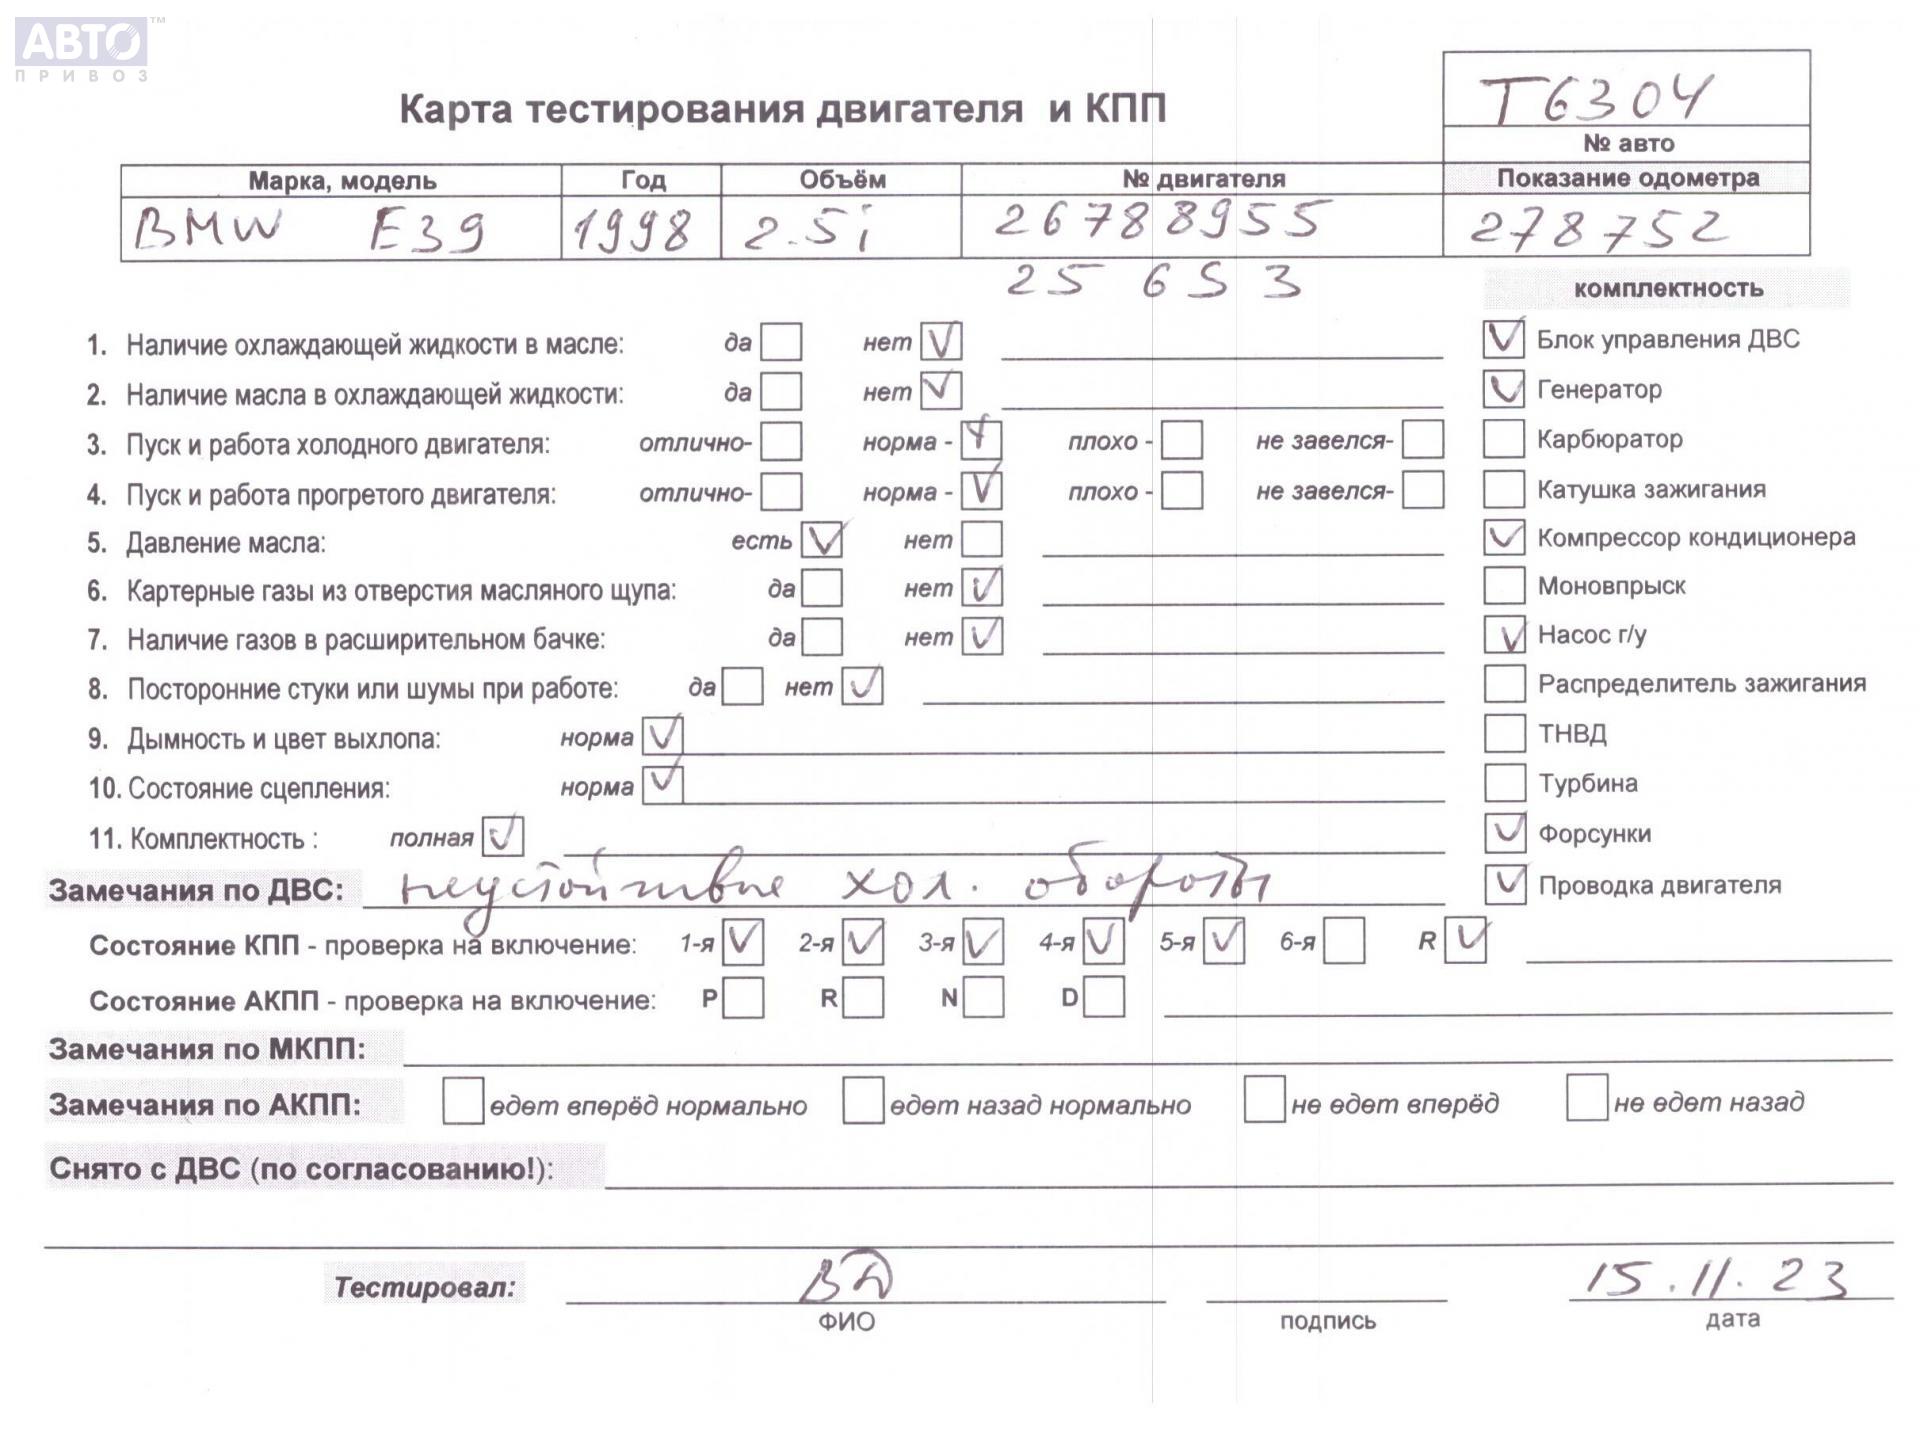 АВТО™
ПРИВОЗ
Т6304
№ авто
Карта тестирования двигателя и КПП
Марка, модель Год Объём № двигателя Показание одометра
BMW E39 1998 2.5i 26788955 278752
25 6S 3
комплектность
1. Наличие охлаждающей жидкости в масле: да нет Блок управления ДВС
2. Наличие масла в охлаждающей жидкости: да нет Генератор
3. Пуск и работа холодного двигателя: отлично- норма - плохо - не завелся- Карбюратор
4. Пуск и работа прогретого двигателя: отлично- норма - плохо - не завелся- Катушка зажигания
5. Давление масла: есть нет Компрессор кондиционера
6. Картерные газы из отверстия масляного щупа: да нет Моновпрыск
7. Наличие газов в расширительном бачке: да нет Насос г/у
8. Посторонние стуки или шумы при работе: да нет Распределитель зажигания
9. Дымность и цвет выхлопа: норма ТНВД
10. Состояние сцепления: норма Турбина
11. Комплектность : полная Форсунки
Замечания по ДВС: неустойчивые хол. обороты Проводка двигателя
Состояние КПП - проверка на включение: 1-я 2-я 3-я 4-я 5-я 6-я R
Состояние АКПП - проверка на включение: P R N D
Замечания по МКПП:
Замечания по АКПП: едет вперёд нормально едет назад нормально не едет вперёд не едет назад
Снято с ДВС (по согласованию!):
Тестировал: 15.11.23
ФИО подпись дата